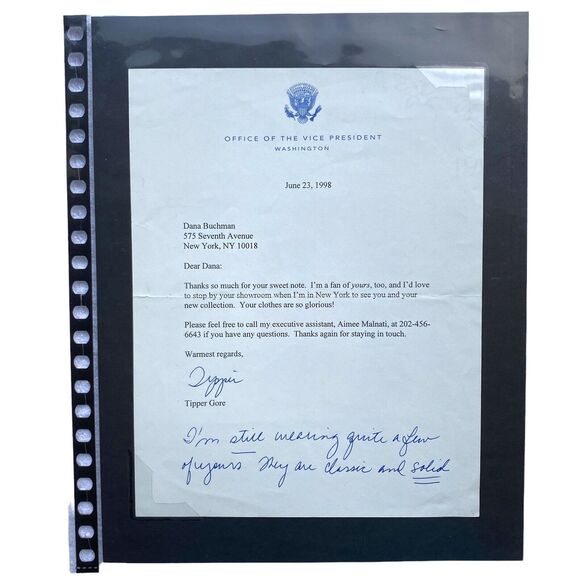 OFFICE OF THE VICE PRESIDENT
WASHINGTON
June 23, 1998
Dana Buchman
575 Seventh Avenue
New York, NY 10018
Dear Dana:
Thanks so much for your sweet note. I'm a fan of yours, too, and I'd love
to stop by your showroom when I'm in New York to see you and your
new collection. Your clothes are so glorious!
Please feel free to call my executive assistant, Aimee Malnati, at 202-456-
6643 if you have any questions. Thanks again for staying in touch.
Warmest regards,
Tipper
Tipper Gore
I'm still wearing quite a few
of yours. They are classic and solid